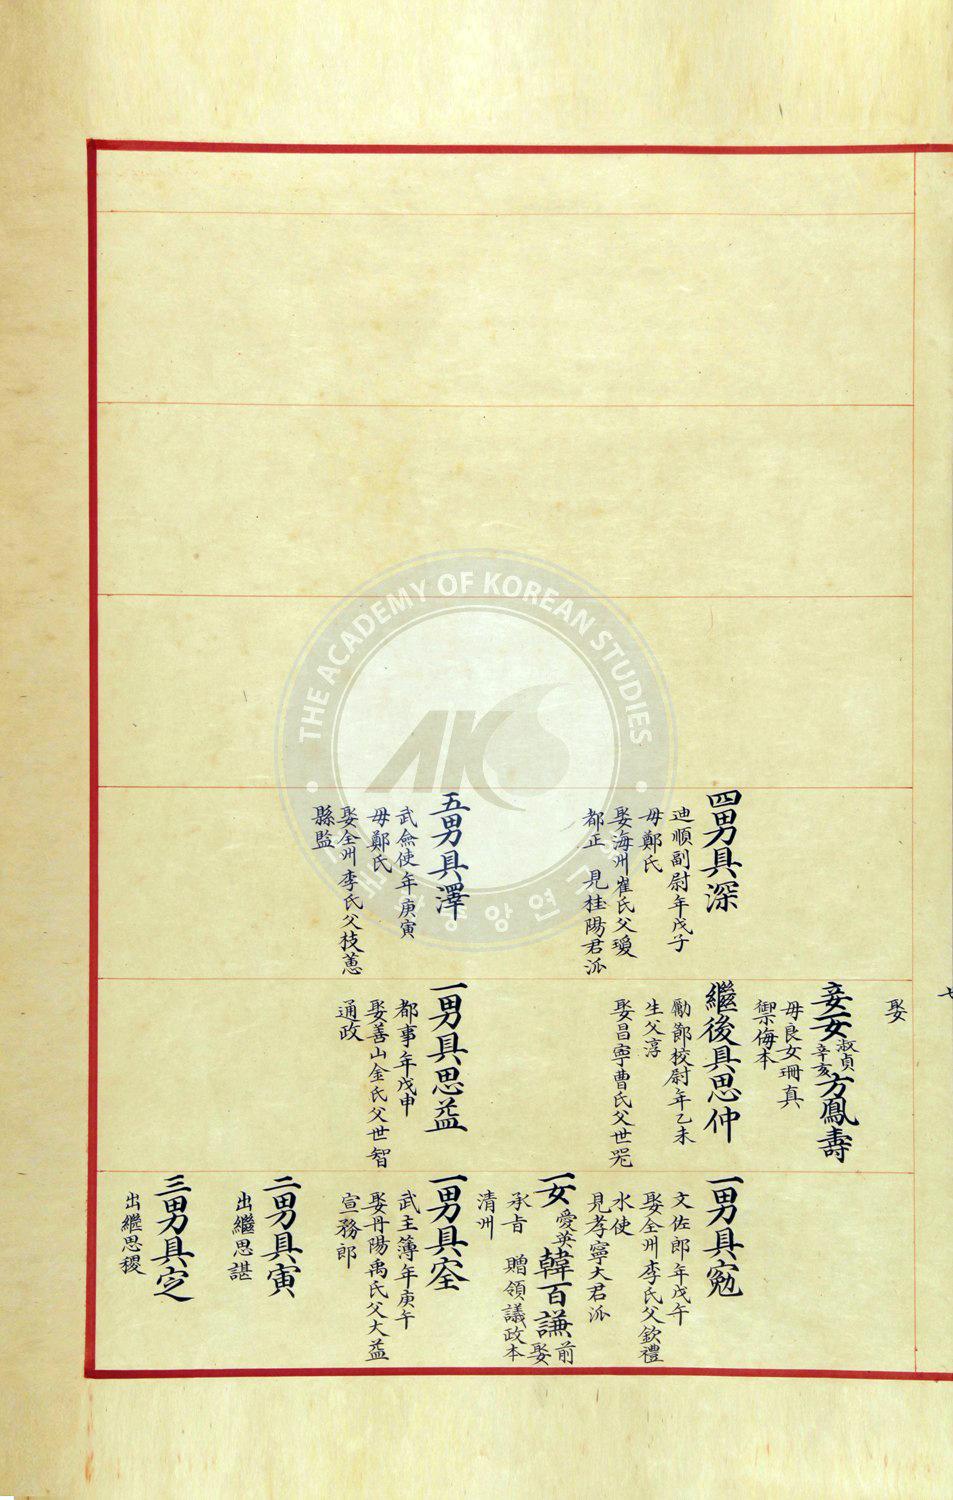 娶
妾女淑貞辛亥方鳳壽
母良女珊真
禦侮本
四男具深
迪順副尉年戊子
母鄭氏
娶海州崔氏父瑷
都正 見桂陽君派
五男具澤
武僉使年庚寅
母鄭氏
娶全州李氏父枝蕙
縣監
繼後具思仲
勵節校尉年乙未
生父淳
娶昌寧曹氏父世
一男具思益
都事年戊申
娶善山金氏父世智
通政
一男具
文佐郎年戊午
娶全州李氏父欽禮
水使
見孝寧大君派
一女愛英韓百謙前娶
承旨 贈領議政本
清州
一男具
武主簿年庚午
娶丹陽禹氏父大益
宣務郎
二男具寅
出繼思諶
三男具定
出繼思稷
THE ACADEMY OF KOREAN STUDIES
AKS
중앙연구